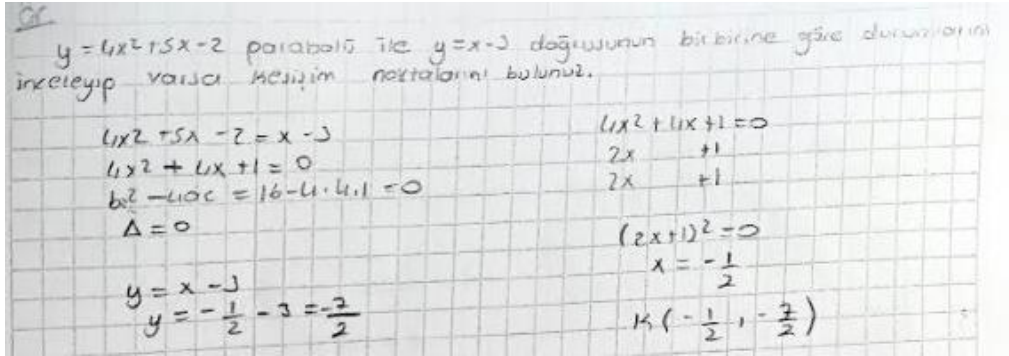 ör.
y = 4x²+5x-2 parabolü ile y=x-3 doğrusunun birbirine göre durumlarını
inceleyip varsa kesişim noktalarını bulunuz.
4x2 +5x -2 = x -3
4x2 + 4x +1 = 0
b² -4ac = 16-4.4.1 =0
Δ = 0
y = x -3
y = -1/2 - 3 = -7/2
4x2 + 4x +1 =0
2x +1
2x +1
(2x+1)² =0
x = -1/2
K(-1/2, -7/2)